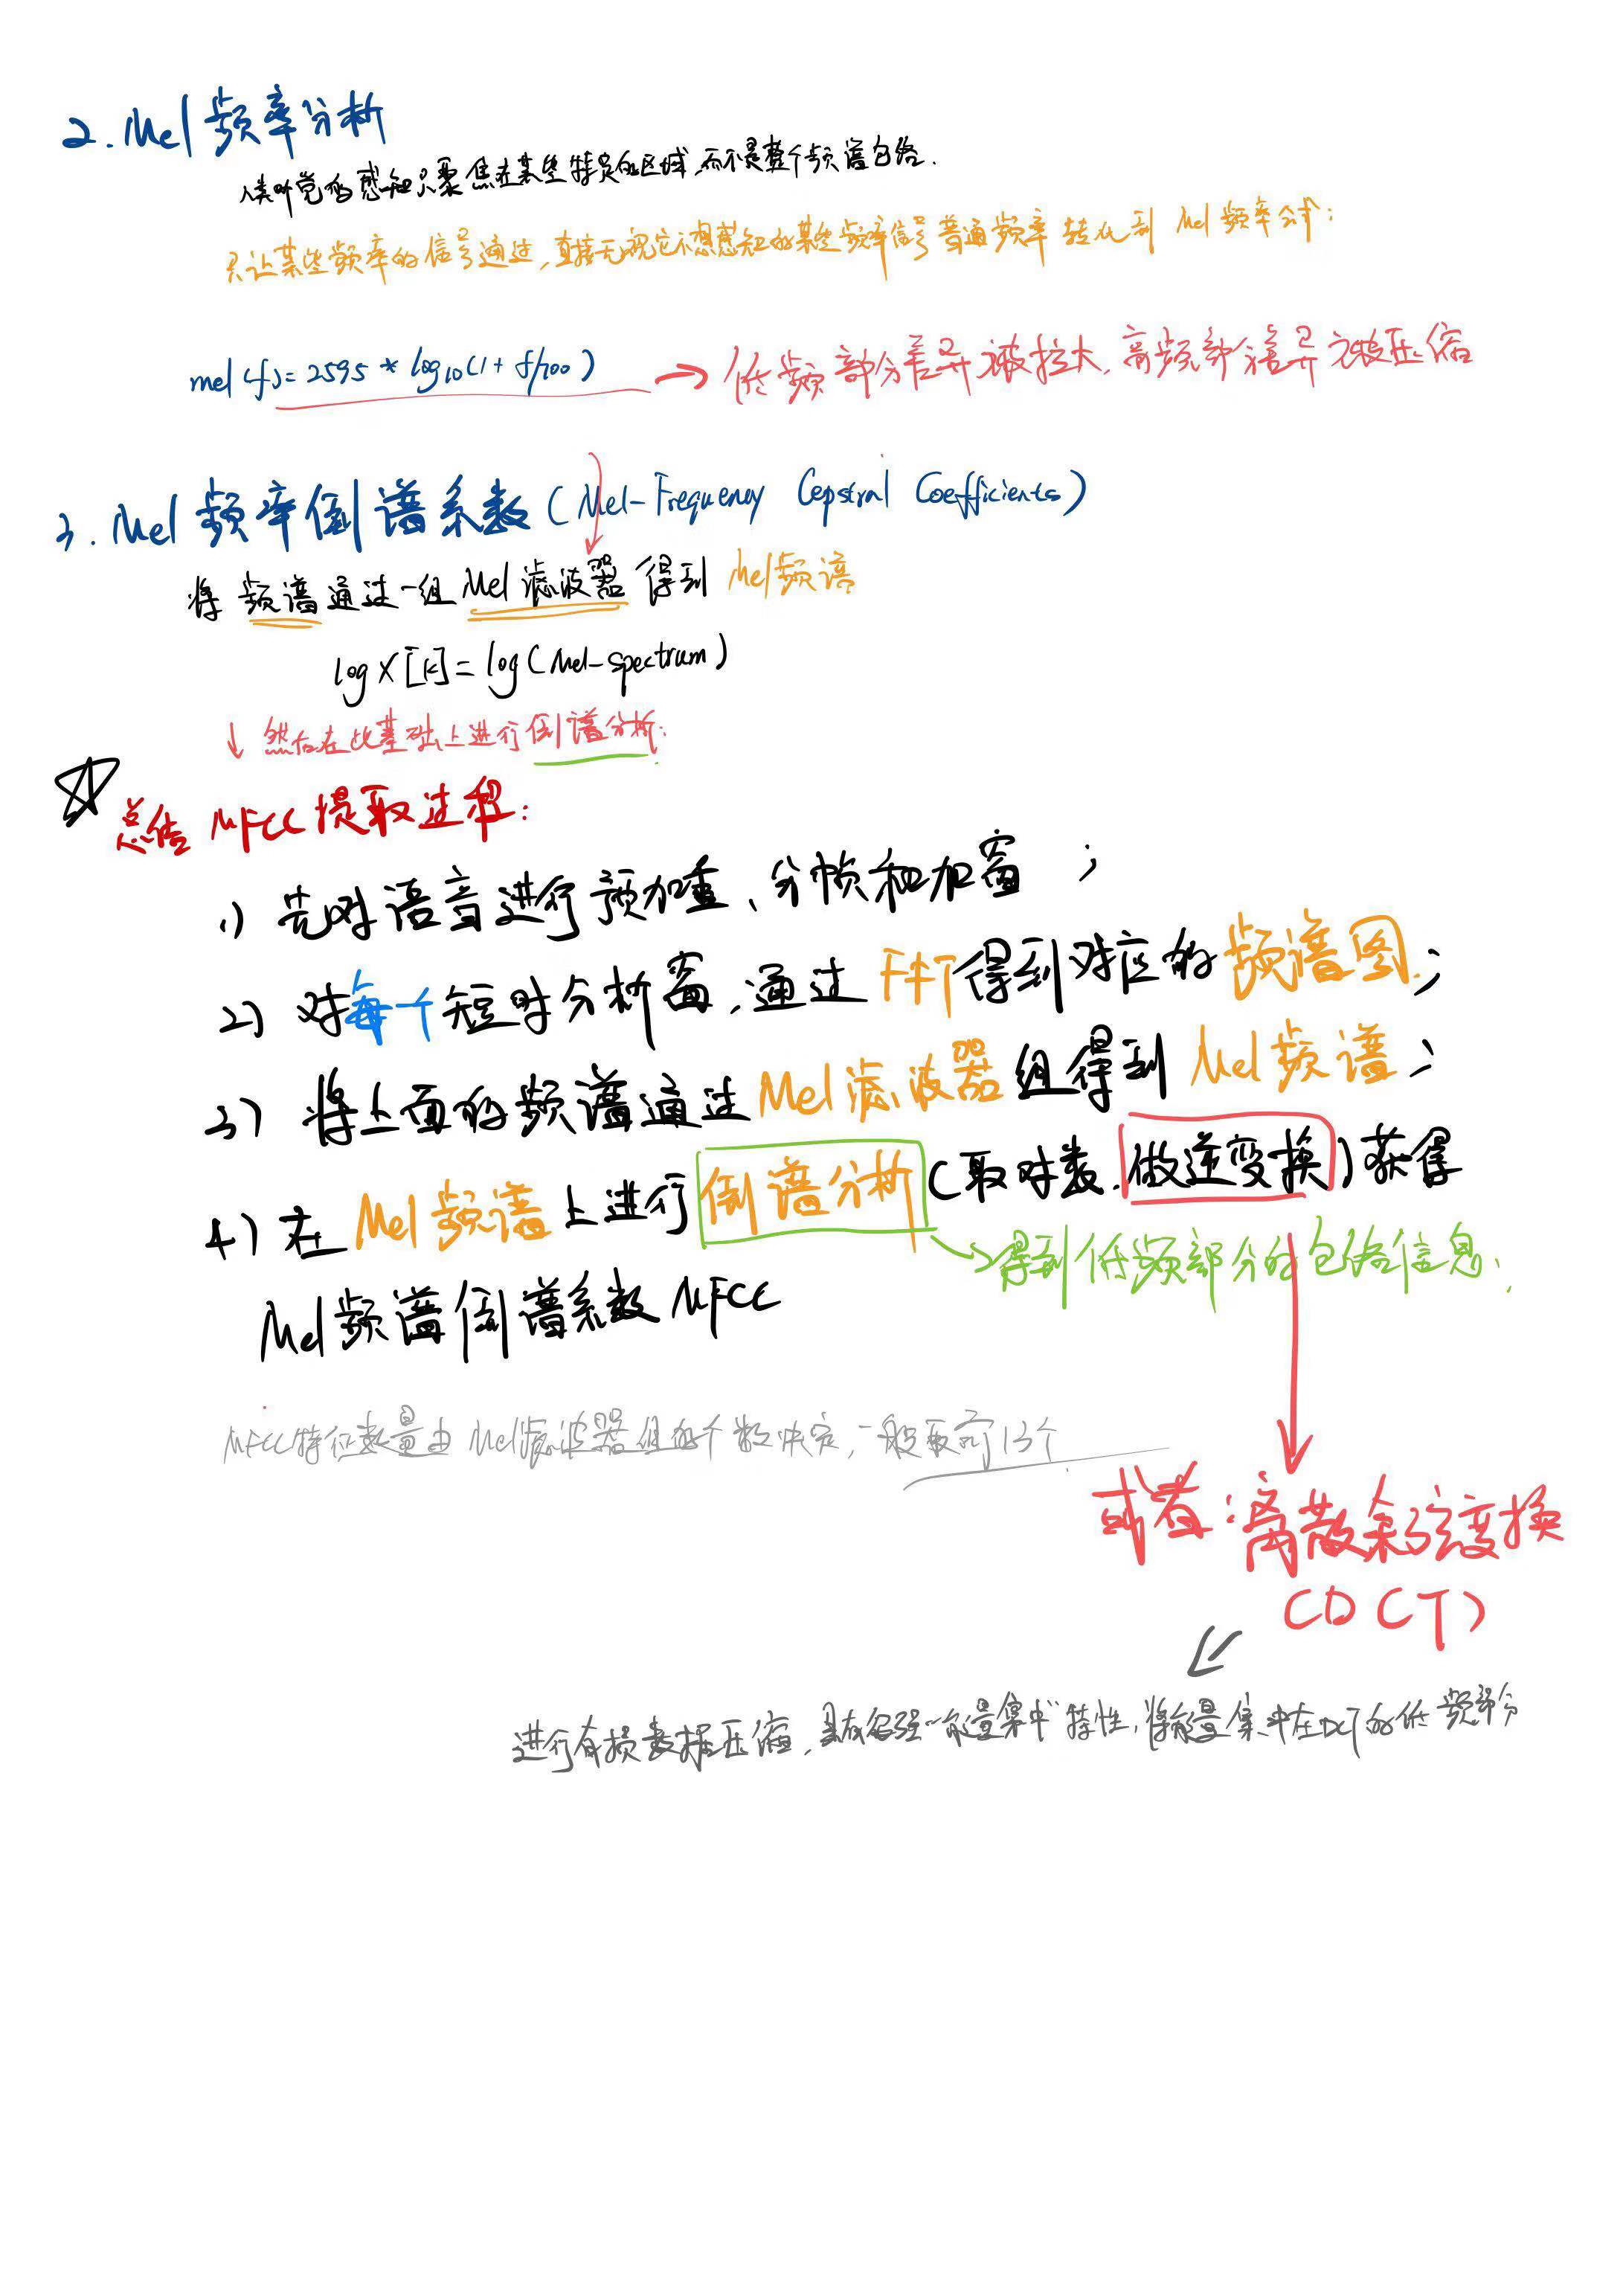 2.Mel频率分析
人类听觉的感知只聚焦在某些特定的区域,而不是整个频谱包络.
只让某些频率的信号通过,直接无视它不想感知的某些频率信号 普通频率转化到 Mel 频率公式:
mel(f)=2595*log10(1+f/700) → 低频部分差异被拉大,高频部分差异被压缩
3.Mel频率倒谱系数(Mel-Frequency Cepstral Coefficients)
将频谱通过一组Mel滤波器得到 Mel频谱
log X[k]=log(Mel-spectrum)
↓ 然后在此基础上进行倒谱分析:
总结 MFCC提取过程:
1) 先对语音进行预加重、分帧和加窗;
2) 对每一个短时分析窗,通过FFT得到对应的频谱图;
3) 将上面的频谱通过Mel滤波器组得到 Mel频谱;
4) 在Mel频谱上进行倒谱分析(取对数,做逆变换)获得
→得到低频部分的包络信息.
Mel频谱倒谱系数MFCC
MFCC特征数量由Mel滤波器组的个数决定,一般取前13个
或者:离散余弦变换
(DCT)
进行有损数据压缩,具有很强"能量集中"特性,将能量集中在DCT的低频部分